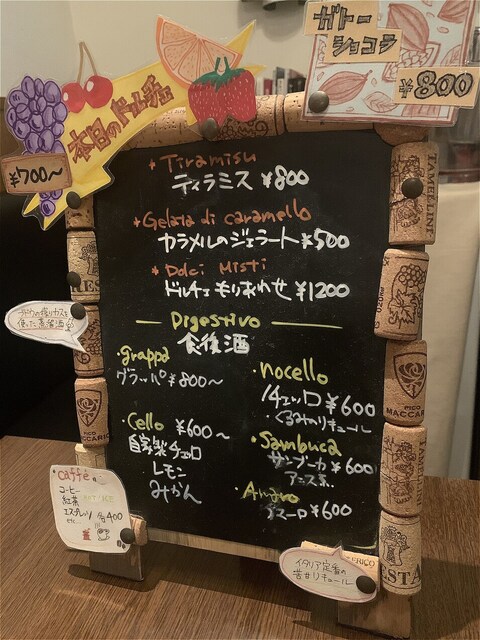 本日のドルチェ
¥700〜
ガトー
ショコラ
¥800
Tiramisu
ティラミス ¥800
Gelato di caramello
カラメルのジェラート ¥500
Dolci Misti
ドルチェもりあわせ ¥1200
Digestivo
食後酒
・grappa
グラッパ ¥800〜
・Cello ¥600〜
自家製チェロ
レモン
みかん
・nocello
ノチェッロ ¥600
・くるみのリキュール
・Sambuca
サンブーカ ¥600
アニス系
・Amaro
アマーロ ¥600
caffé
コーヒー
紅茶
エスプレッソ
etc
各400
イタリア定番の
苦甘リキュール
TAVELLINI
PICO
MACCARIO